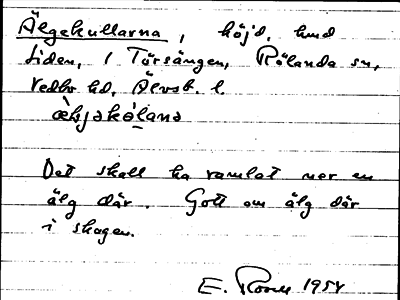 Älgekullarna, höjd, hmd
Liden, i Torsängen, Rölanda sn,
Vedbo hd, Älvsb. l.
Det skall ha ramlat ner en
älg där. Gott om älg där
i skogen.
E. 1954